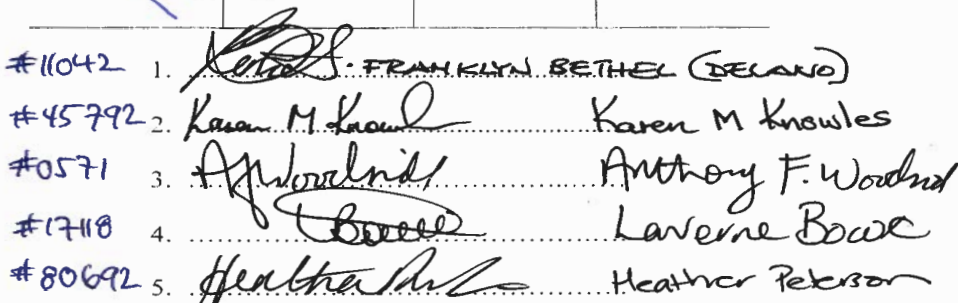 #11042 1. FRANKLYN BETHEL (DELANO)
#45792 2. Karen M Knowl Karen M Knowles
#0571 3. AJWoodside Anthony F. Woodsid
#17118 4. Bowe Laverne Bowe
#80692 5. Heather Heather Peterson